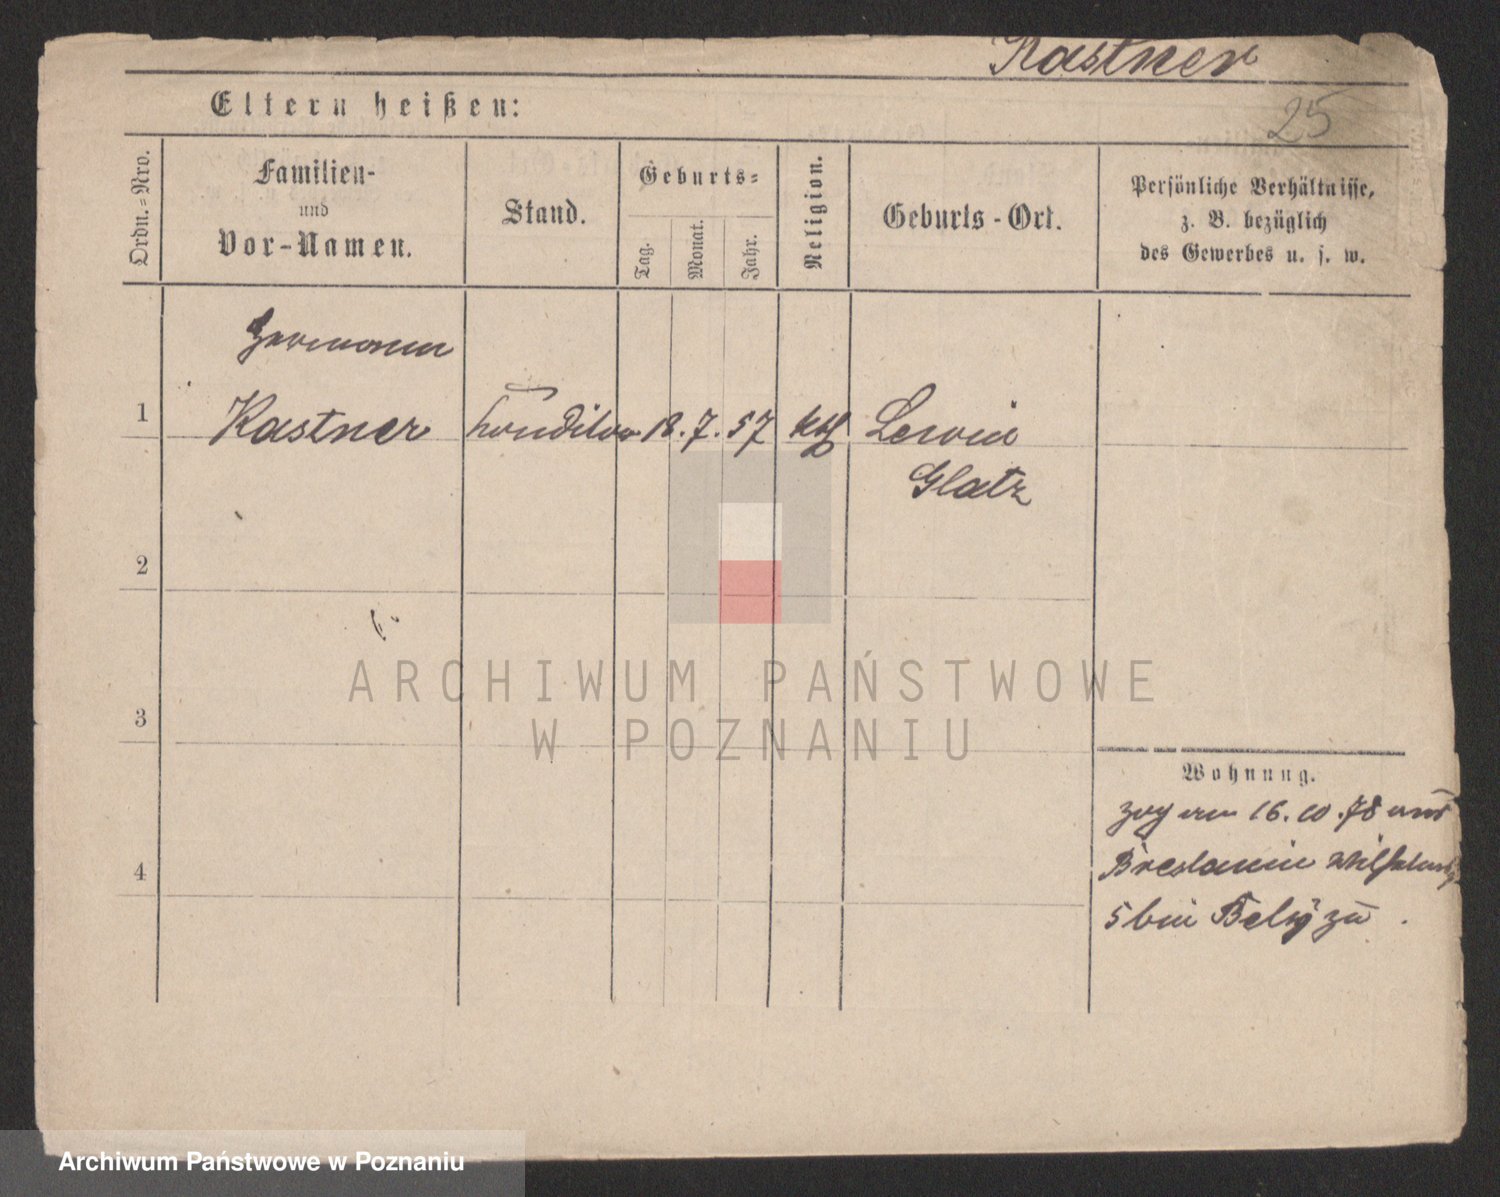 Kastner
25
Eltern heißen:
Ordn.-Nro.
Familien-
und
Vor-Namen.
Stand.
Geburts-
Tag.
Monat.
Jahr.
Religion.
Geburts-Ort.
Persönliche Verhältnisse,
z. B. bezüglich
des Gewerbes u. s. w.
Hermann
1 Kastner Konditor 18. 7. 57 kth Lewin
Glatz
2
3
4
Wohnung.
zog am 16.10.78 aus
Breslau in
5 bei zu.
ARCHIWUM PAŃSTWOWE
W POZNANIU
Archiwum Państwowe w Poznaniu